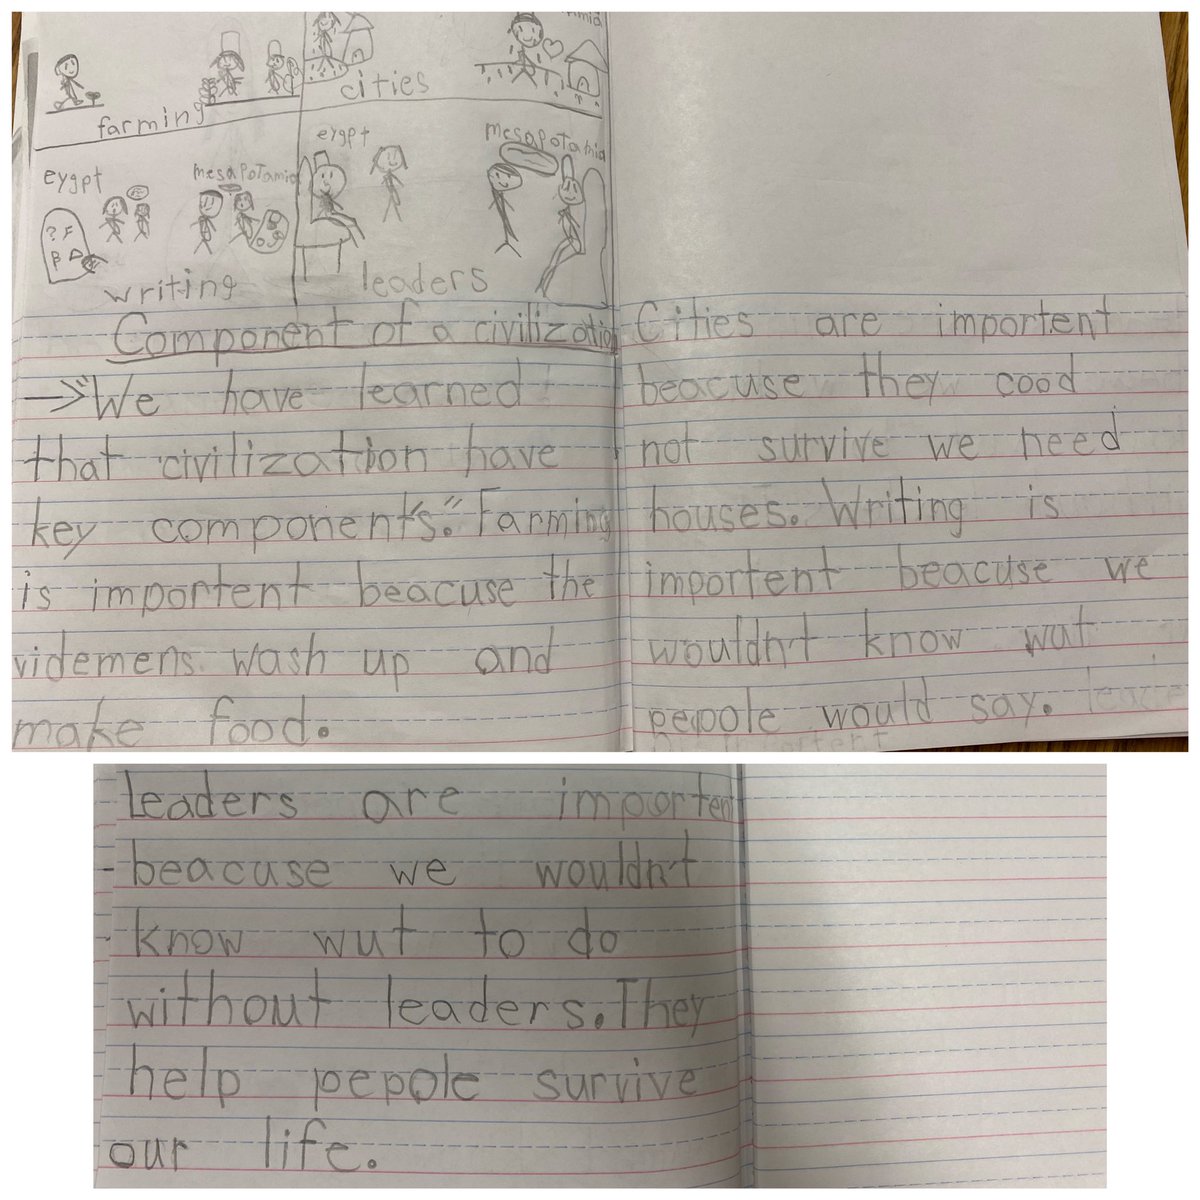 farming
cities
eygpt
mesapotamia
writing
eygpt
mesapotamia
leaders
Component of a civilization
"We have learned
that civilization have
key components." Farming
is importent beacuse the
videmens wash up and
make food.
Cities are importent
beacuse they cood
not survive we need
houses. Writing is
importent beacuse we
wouldn't know wut
pepole would say.
leaders are importent
beacuse we wouldn't
know wut to do
without leaders. They
help pepole survive
our life.